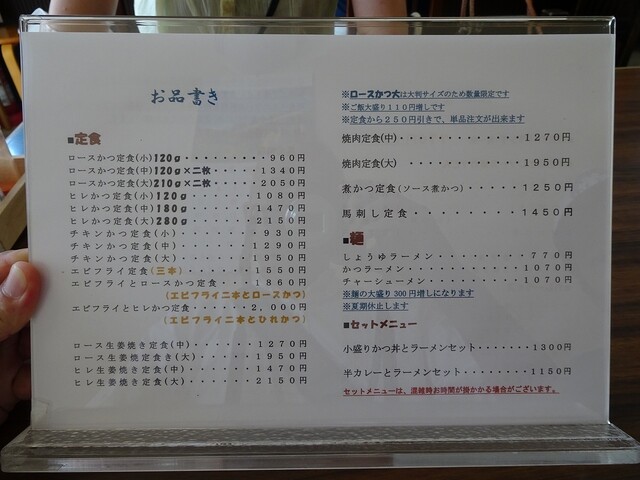 お品書き
■定食
ロースかつ定食(小)120g・・・・・・・・・960円
ロースかつ定食(中)120g×二枚・・・・・1340円
ロースかつ定食(大)210g×二枚・・・・・2050円
ヒレかつ定食(小)120g・・・・・・・・1080円
ヒレかつ定食(中)180g・・・・・・・・1470円
ヒレかつ定食(大)280g・・・・・・・・2150円
チキンかつ定食(小)・・・・・・・・・930円
チキンかつ定食(中)・・・・・・・・1290円
チキンかつ定食(大)・・・・・・・・1950円
エビフライ定食(三本)・・・・・・・1550円
エビフライとロースかつ定食・・・・1860円
(エビフライ二本とロースかつ)
エビフライとヒレかつ定食・・・2,000円
(エビフライ二本とひれかつ)
ロース生姜焼き定食(中)・・・・・・1270円
ロース生姜焼定食き(大)・・・・・・1950円
ヒレ生姜焼き定食(中)・・・・・・・1470円
ヒレ生姜焼き定食(大)・・・・・・・2150円
※ロースかつ大は大判サイズのため数量限定です
※ご飯大盛り110円増しです
※定食から250円引きで、単品注文が出来ます
焼肉定食(中)・・・・・・・・・・・・1270円
焼肉定食(大)・・・・・・・・・・・・1950円
煮かつ定食(ソース煮かつ)・・・・・1250円
馬刺し定食・・・・・・・・1450円
■麺
しょうゆラーメン・・・・・・・・770円
かつラーメン・・・・・・・・・・1070円
チャーシューメン・・・・・・・・1070円
※麺の大盛り300円増しになります
※夏期休止します
■セットメニュー
小盛りかつ丼とラーメンセット・・・・1300円
半カレーとラーメンセット・・・・・・1150円
セットメニューは、混雑時お時間が掛かかる場合がございます。